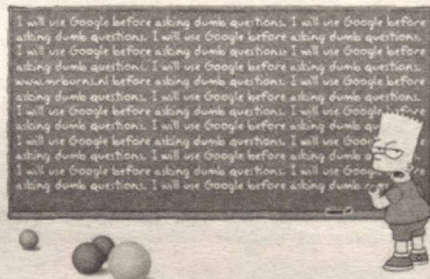 I will use Google before asking dumb questions. I will use Google before
asking dumb questions. I will use Google before asking dumb questions.
I will use Google before asking dumb questions. I will use Google before
asking dumb questions. I will use Google before asking dumb questions.
www.mrburns.nl before asking dumb questions. I will use Google before
asking dumb questions. I will use Google before asking dumb questions.
I will use Google before asking dumb questions. I will use Google before
asking dumb questions. I will use Google before asking dumb
I will use Google before asking dumb questions. I will use Google before
asking dumb questions. I will use Google before asking dumb
I will use Google before asking dumb questions. I will use
asking dumb questions. I will use Google before asking dumb